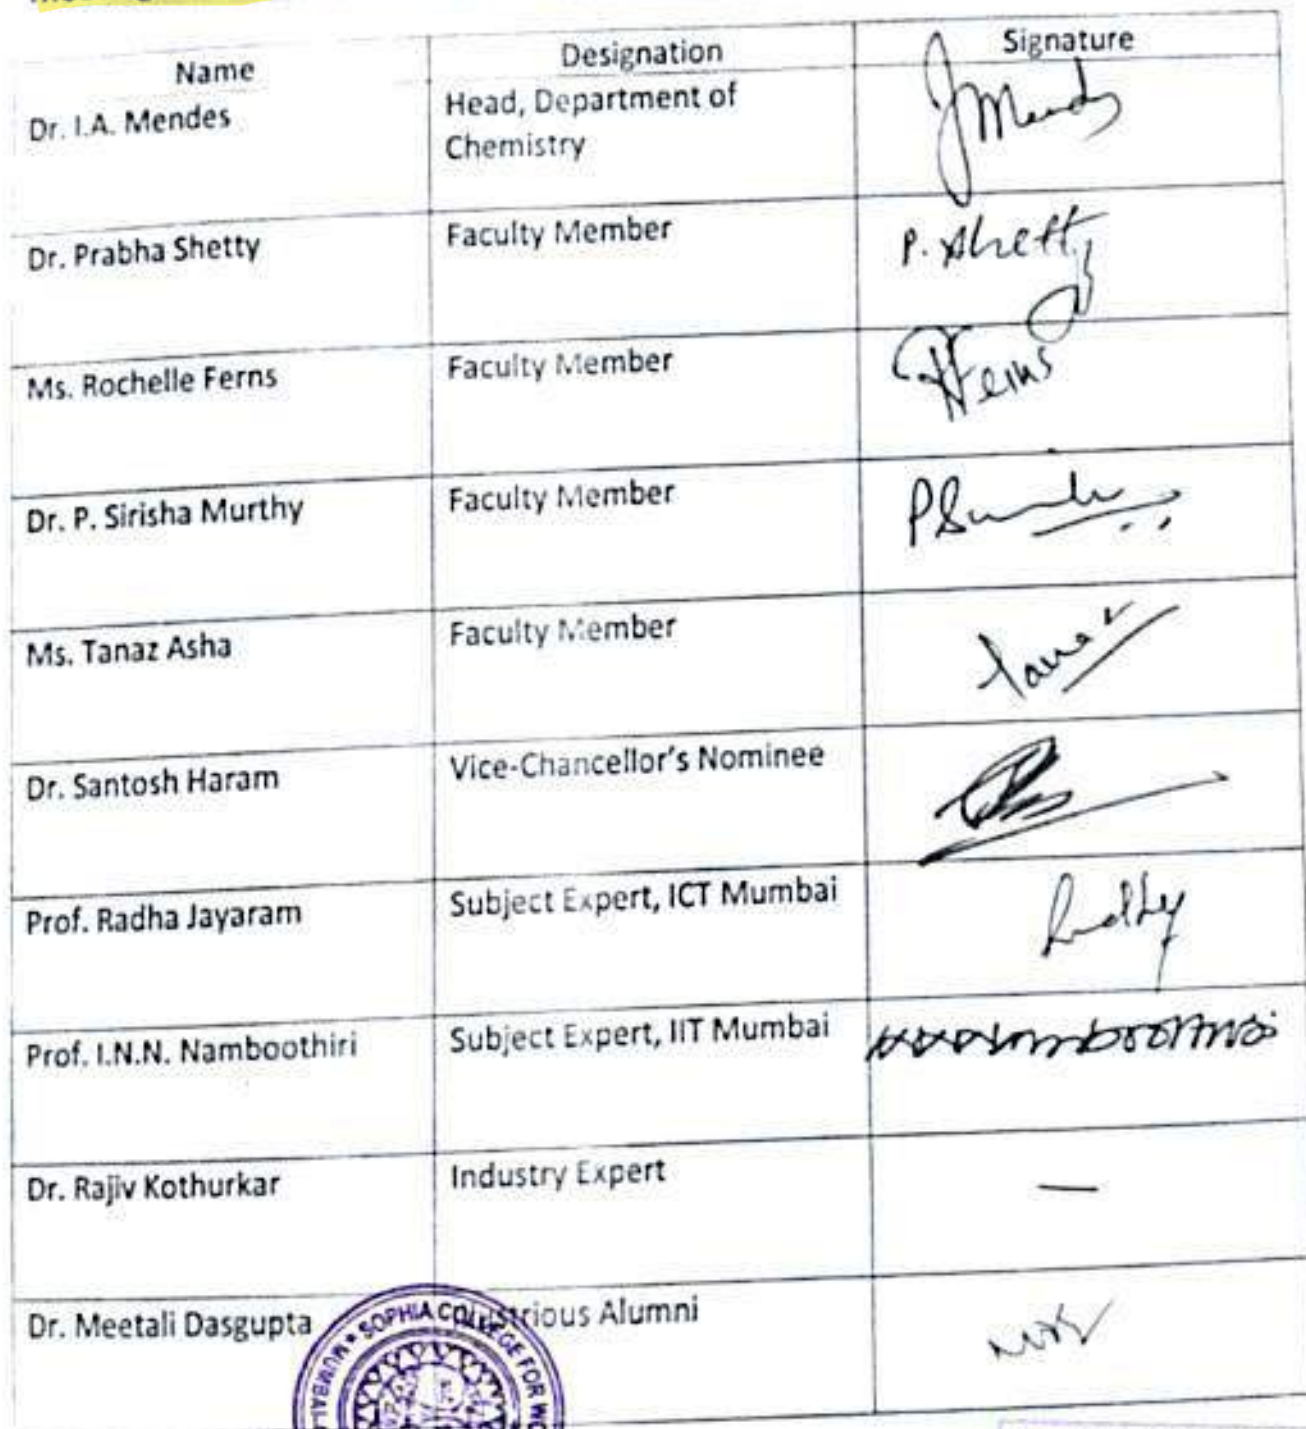 Name Designation Signature
Dr. I.A. Mendes Head, Department of
Chemistry
J Mendes
Dr. Prabha Shetty Faculty Member P. Shetty
Ms. Rochelle Ferns Faculty Member RFerns
Dr. P. Sirisha Murthy Faculty Member
Ms. Tanaz Asha Faculty Member Tanaz
Dr. Santosh Haram Vice-Chancellor's Nominee
Prof. Radha Jayaram Subject Expert, ICT Mumbai
Prof. I.N.N. Namboothiri Subject Expert, IIT Mumbai
Dr. Rajiv Kothurkar Industry Expert —
Dr. Meetali Dasgupta Alumni
SOPHIA COLLEGE FOR
MUMBAI